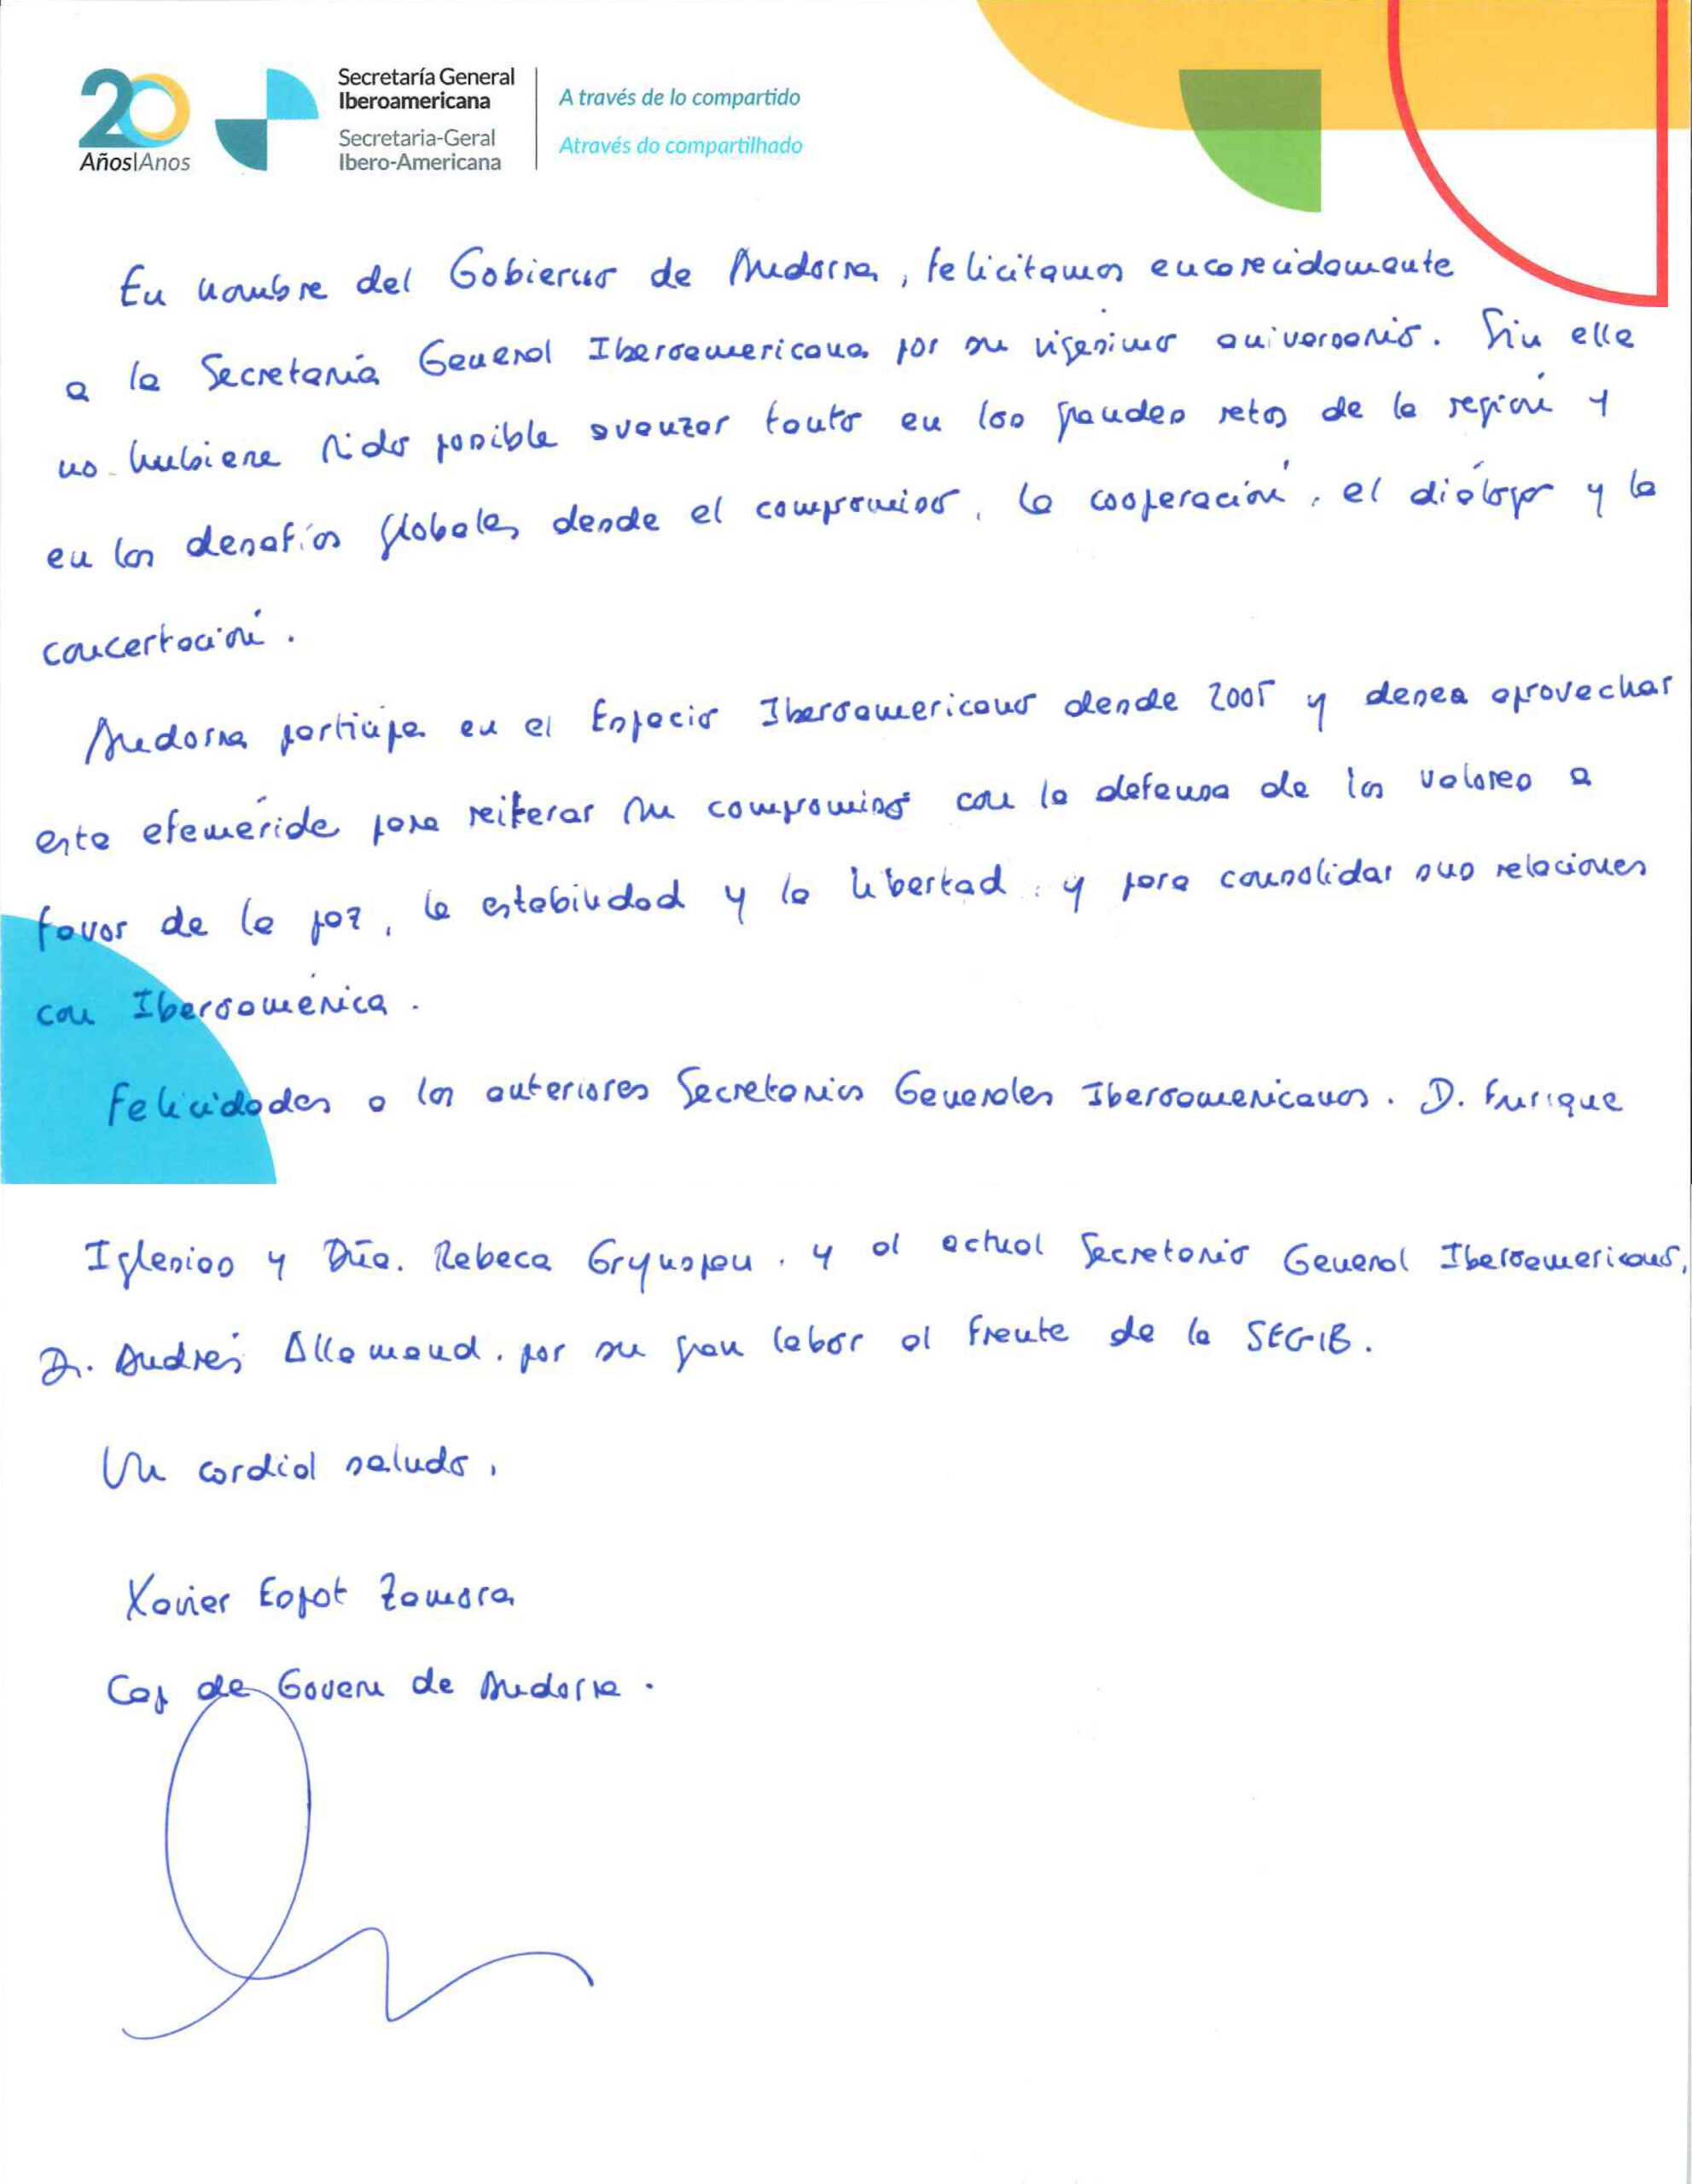 20
Años|Anos
Secretaría General
Iberoamericana
Secretaria-Geral
Ibero-Americana
A través de lo compartido
Através do compartilhado
En nombre del Gobierno de Andorra, felicitamos encarecidamente
a la Secretaría General Iberoamericana por su vigésimo aniversario. Sin ella
no hubiera sido posible avanzar tanto en los grandes retos de la región y
en los desafíos globales desde el compromiso, la cooperación, el diálogo y la
concertación.
Andorra participa en el Espacio Iberoamericano desde 2005 y desea aprovechar
esta efeméride para reiterar su compromiso con la defensa de los valores a
favor de la paz, la estabilidad y la libertad, y para consolidar sus relaciones
con Iberoamérica.
Felicidades a los anteriores Secretarios Generales Iberoamericanos, D. Enrique
Iglesias y Dña. Rebeca Grynspan, y al actual Secretario General Iberoamericano,
D. Andrés Allamand, por su gran labor al frente de la SEGIB.
Un cordial saludo,
Xavier Espot Zamora
Cap de Govern de Andorra.